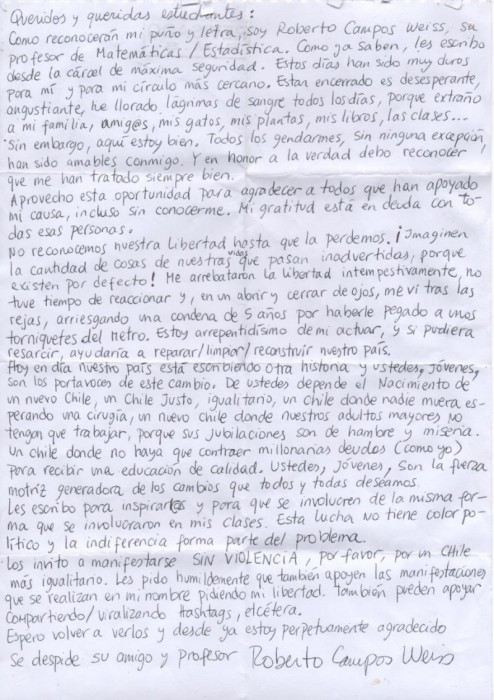 Queridos y queridas estudiantes:
Como reconocerán mi puño y letra, soy Roberto Campos Weiss, su
profesor de Matemáticas/Estadística. Como ya saben, les escribo
desde la cárcel de máxima seguridad. Estos días han sido muy duros
para mí y para mi círculo más cercano. Estar encerrado es desesperante,
angustiante, he llorado lágrimas de sangre todos los días, porque extraño
a mi familia, amig@s, mis gatos, mis plantas, mis libros, las clases...
Sin embargo, aquí estoy bien. Todos los gendarmes, sin ninguna excepción,
han sido amables conmigo. Y en honor a la verdad debo reconocer,
que me han tratado siempre bien.
Aprovecho esta oportunidad para agradecer a todos que han apoyado
mi causa, incluso sin conocerme. Mi gratitud está en deuda con to-
das esas personas.
No reconocemos nuestra Libertad hasta que la perdemos. ¡Imaginen
la cantidad de cosas de nuestras vidas que pasan inadvertidas, porque
existen por defecto! Me arrebataron la libertad intempestivamente, no
tuve tiempo de reaccionar y, en un abrir y cerrar de ojos, me vi tras las
rejas, arriesgando una condena de 5 años por haberle pegado a unos
torniquetes del Metro. Estoy arrepentidísimo de mi actuar, y si pudiera
resarcir, ayudaría a reparar/limpiar/reconstruir nuestro país.
Hoy en día nuestro país está escribiendo otra historia y ustedes, jóvenes,
son los portavoces de este cambio. De ustedes depende el Nacimiento de
un nuevo Chile, un Chile Justo, igualitario, un chile donde nadie muera es-
perando una cirugía, un nuevo chile donde nuestros adultos mayores NO
tengan que trabajar, porque sus jubilaciones son de hambre y miseria.
Un chile donde no haya que contraer millonarias deudas (como yo)
para recibir una educación de calidad. Ustedes, Jóvenes, son la fuerza
motriz generadora de los cambios que todos y todas deseamos.
Les escribo para inspirarlos y para que se involucren de la misma for-
ma que se involucraron en mis clases. Esta lucha no tiene color po-
lítico y la indiferencia forma parte del problema.
Los invito a manifestarse SIN VIOLENCIA, por favor, por un CHile
más igualitario. Les pido humildemente que también apoyen las manifestaciones
que se realizan en mi nombre pidiendo mi libertad. También pueden apoyar
compartiendo/viralizando Hashtags, etcétera.
Espero volver a verlos y desde ya estoy perpetuamente agradecido
Se despide su amigo y profesor Roberto Campos Weiss